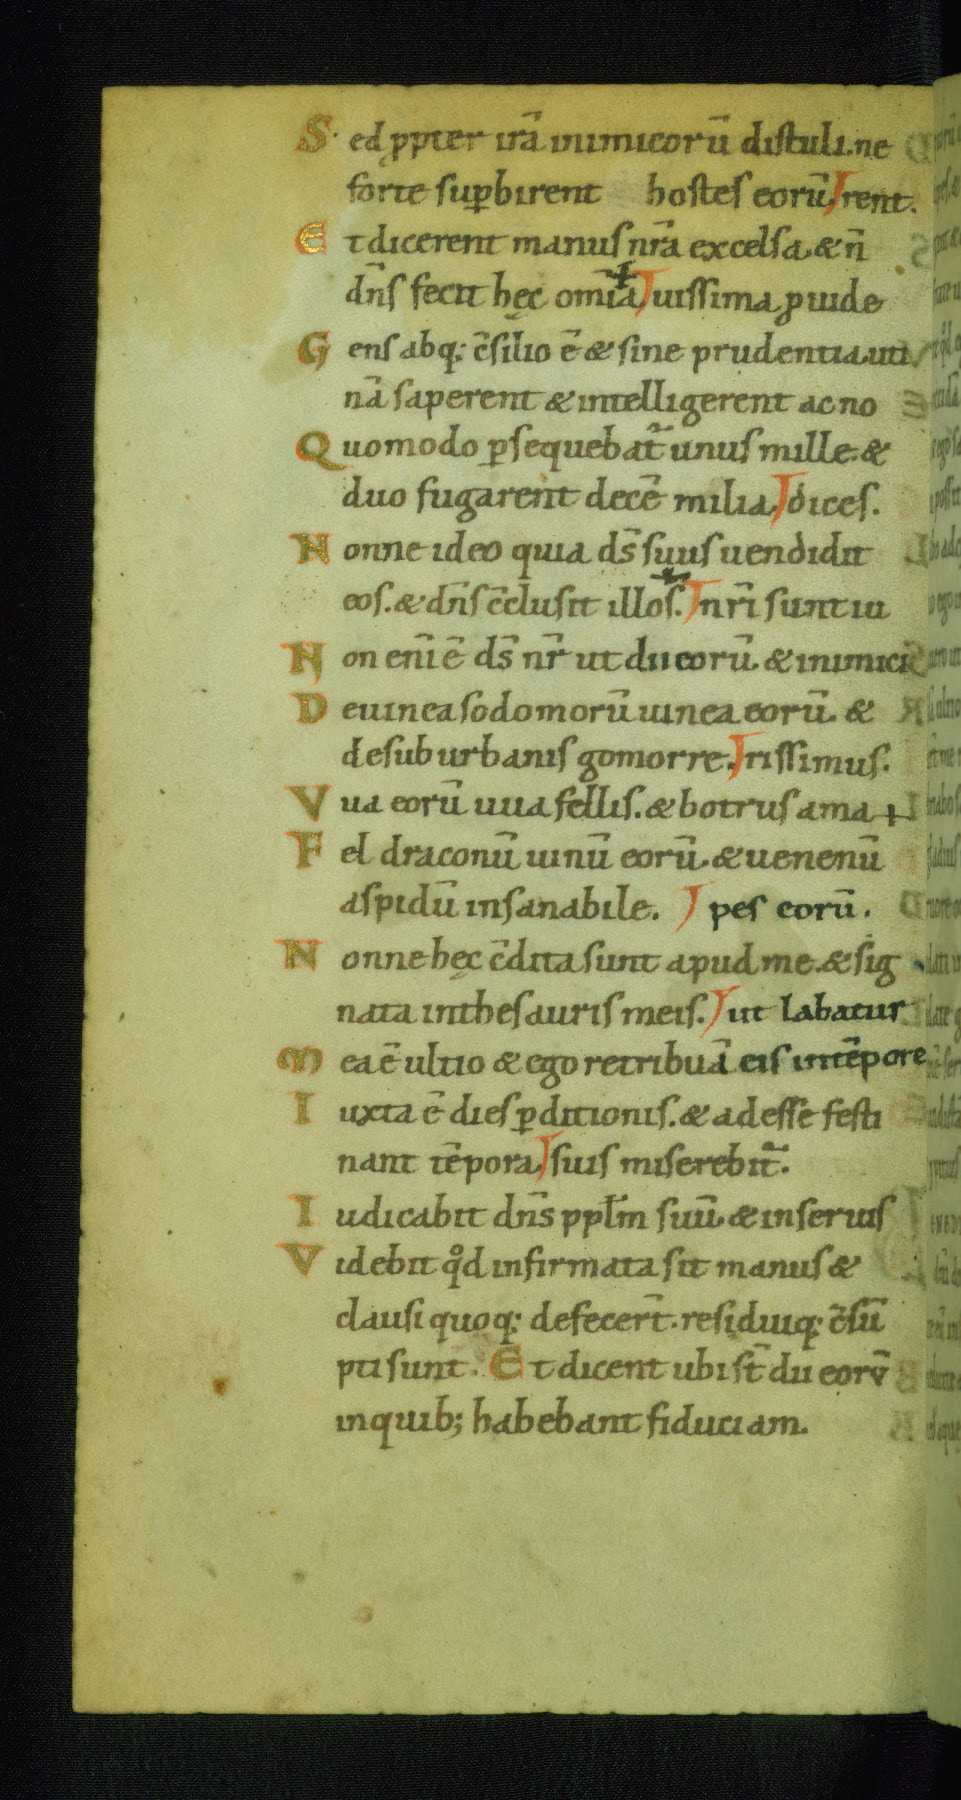 Sed ꝓpter irā inimicorū distuli. ne
forte suꝑbirent hostes eorū rent.
Et dicerent manus nr̄a excelsa. & n̄
dn̄s fecit hęc om̄ia uissima ꝓuide
Gens absq; c̄silio ē & sine prudentia. uti
nā saperent & intelligerent ac no
Quomodo ꝑsequebat᷑ unus mille. &
duo fugarent decē milia dices.
Nonne ideo quia ds̄ suus uendidit
eos. & dn̄s c̄clusit illos. nr̄i sunt iu
Non eni̅ ē ds̄ nr̄ ut dii eorū. & inimici
De uinea sodomorū uinea eorū. &
de suburbanis gomorre. rissimus.
Vua eorū uua fellis. & botrus ama
Fel draconū uinū eorū. & uenenū
aspidū insanabile. pes eorū.
Nonne hęc c̄dita sunt apud me. & sig
nata in thesauris meis. ut labatur
Mea ē ultio & ego retribuā eis in tēpore
Iuxta ē dies ꝑditionis. & adesse festi
nant tēpora suis miserebit᷑.
Iudicabit dn̄s ppl̄m suū. & in seruis
Videbit qd̊ infirmata sit manus &
clausi quoq; defecer̄t. residuiq; c̄sū
pti sunt. Et dicent ubi st̄ dii eorv̄
in quib; habebant fiduciam.